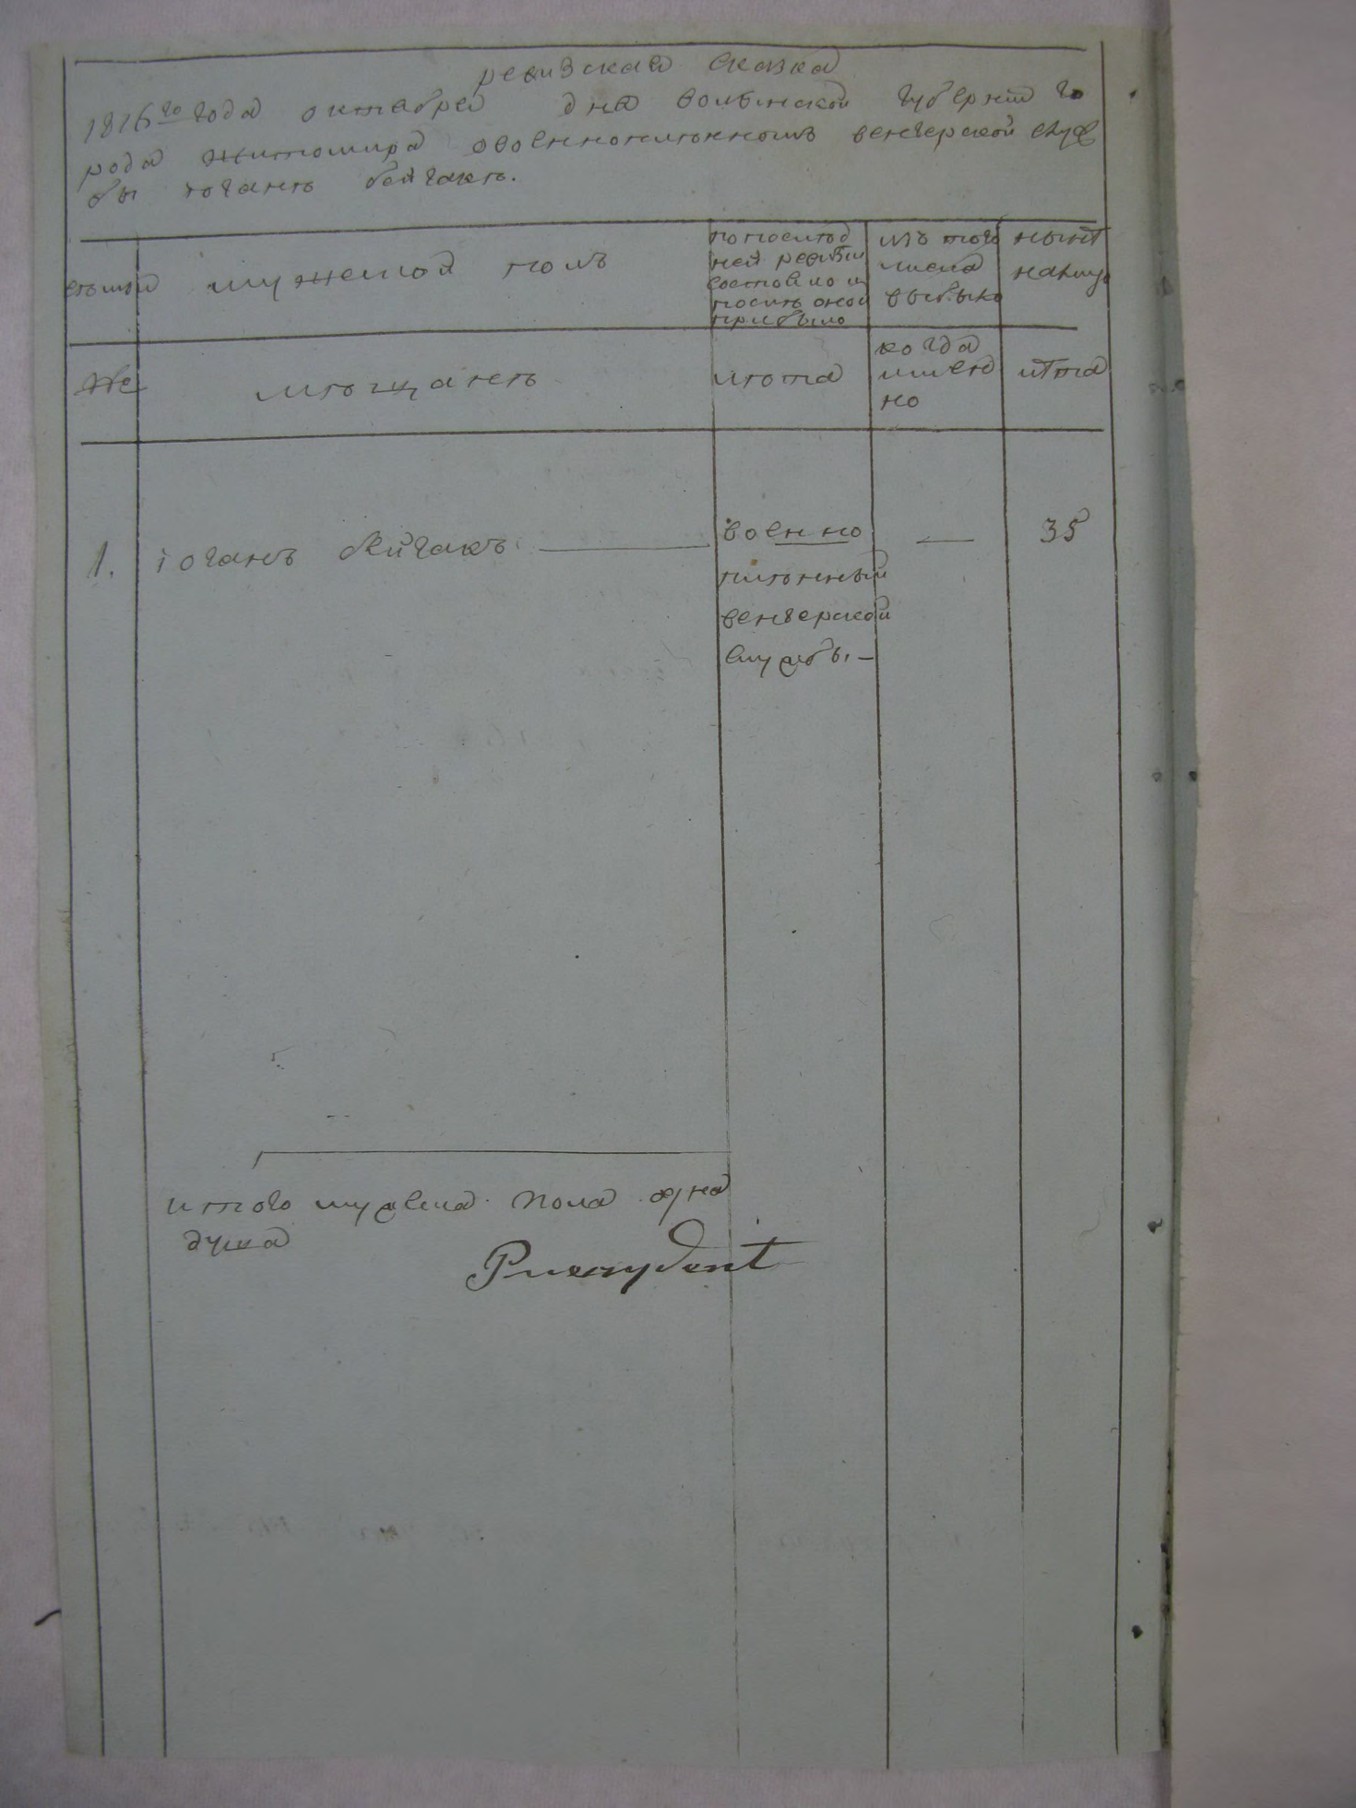 ревизская сказка
1816го года октабря дня волынской губернии го
рода житомира овоеннопленномъ венгерской служ
бы іоганѣ бейгакѣ.
мужеской полъ
попослѣд
ней ревизіи
состояло и
послѣ оной
прибыло
изъ того
числа
выбыло
нынѣ
налицо
мѣщанѣ
лѣта
когда
имен
но
лѣта
1. іоганъ бейгакъ
военно
плѣнный
венгерской
службы
—
35
итого мужеска пола одна
душа
Prezydent